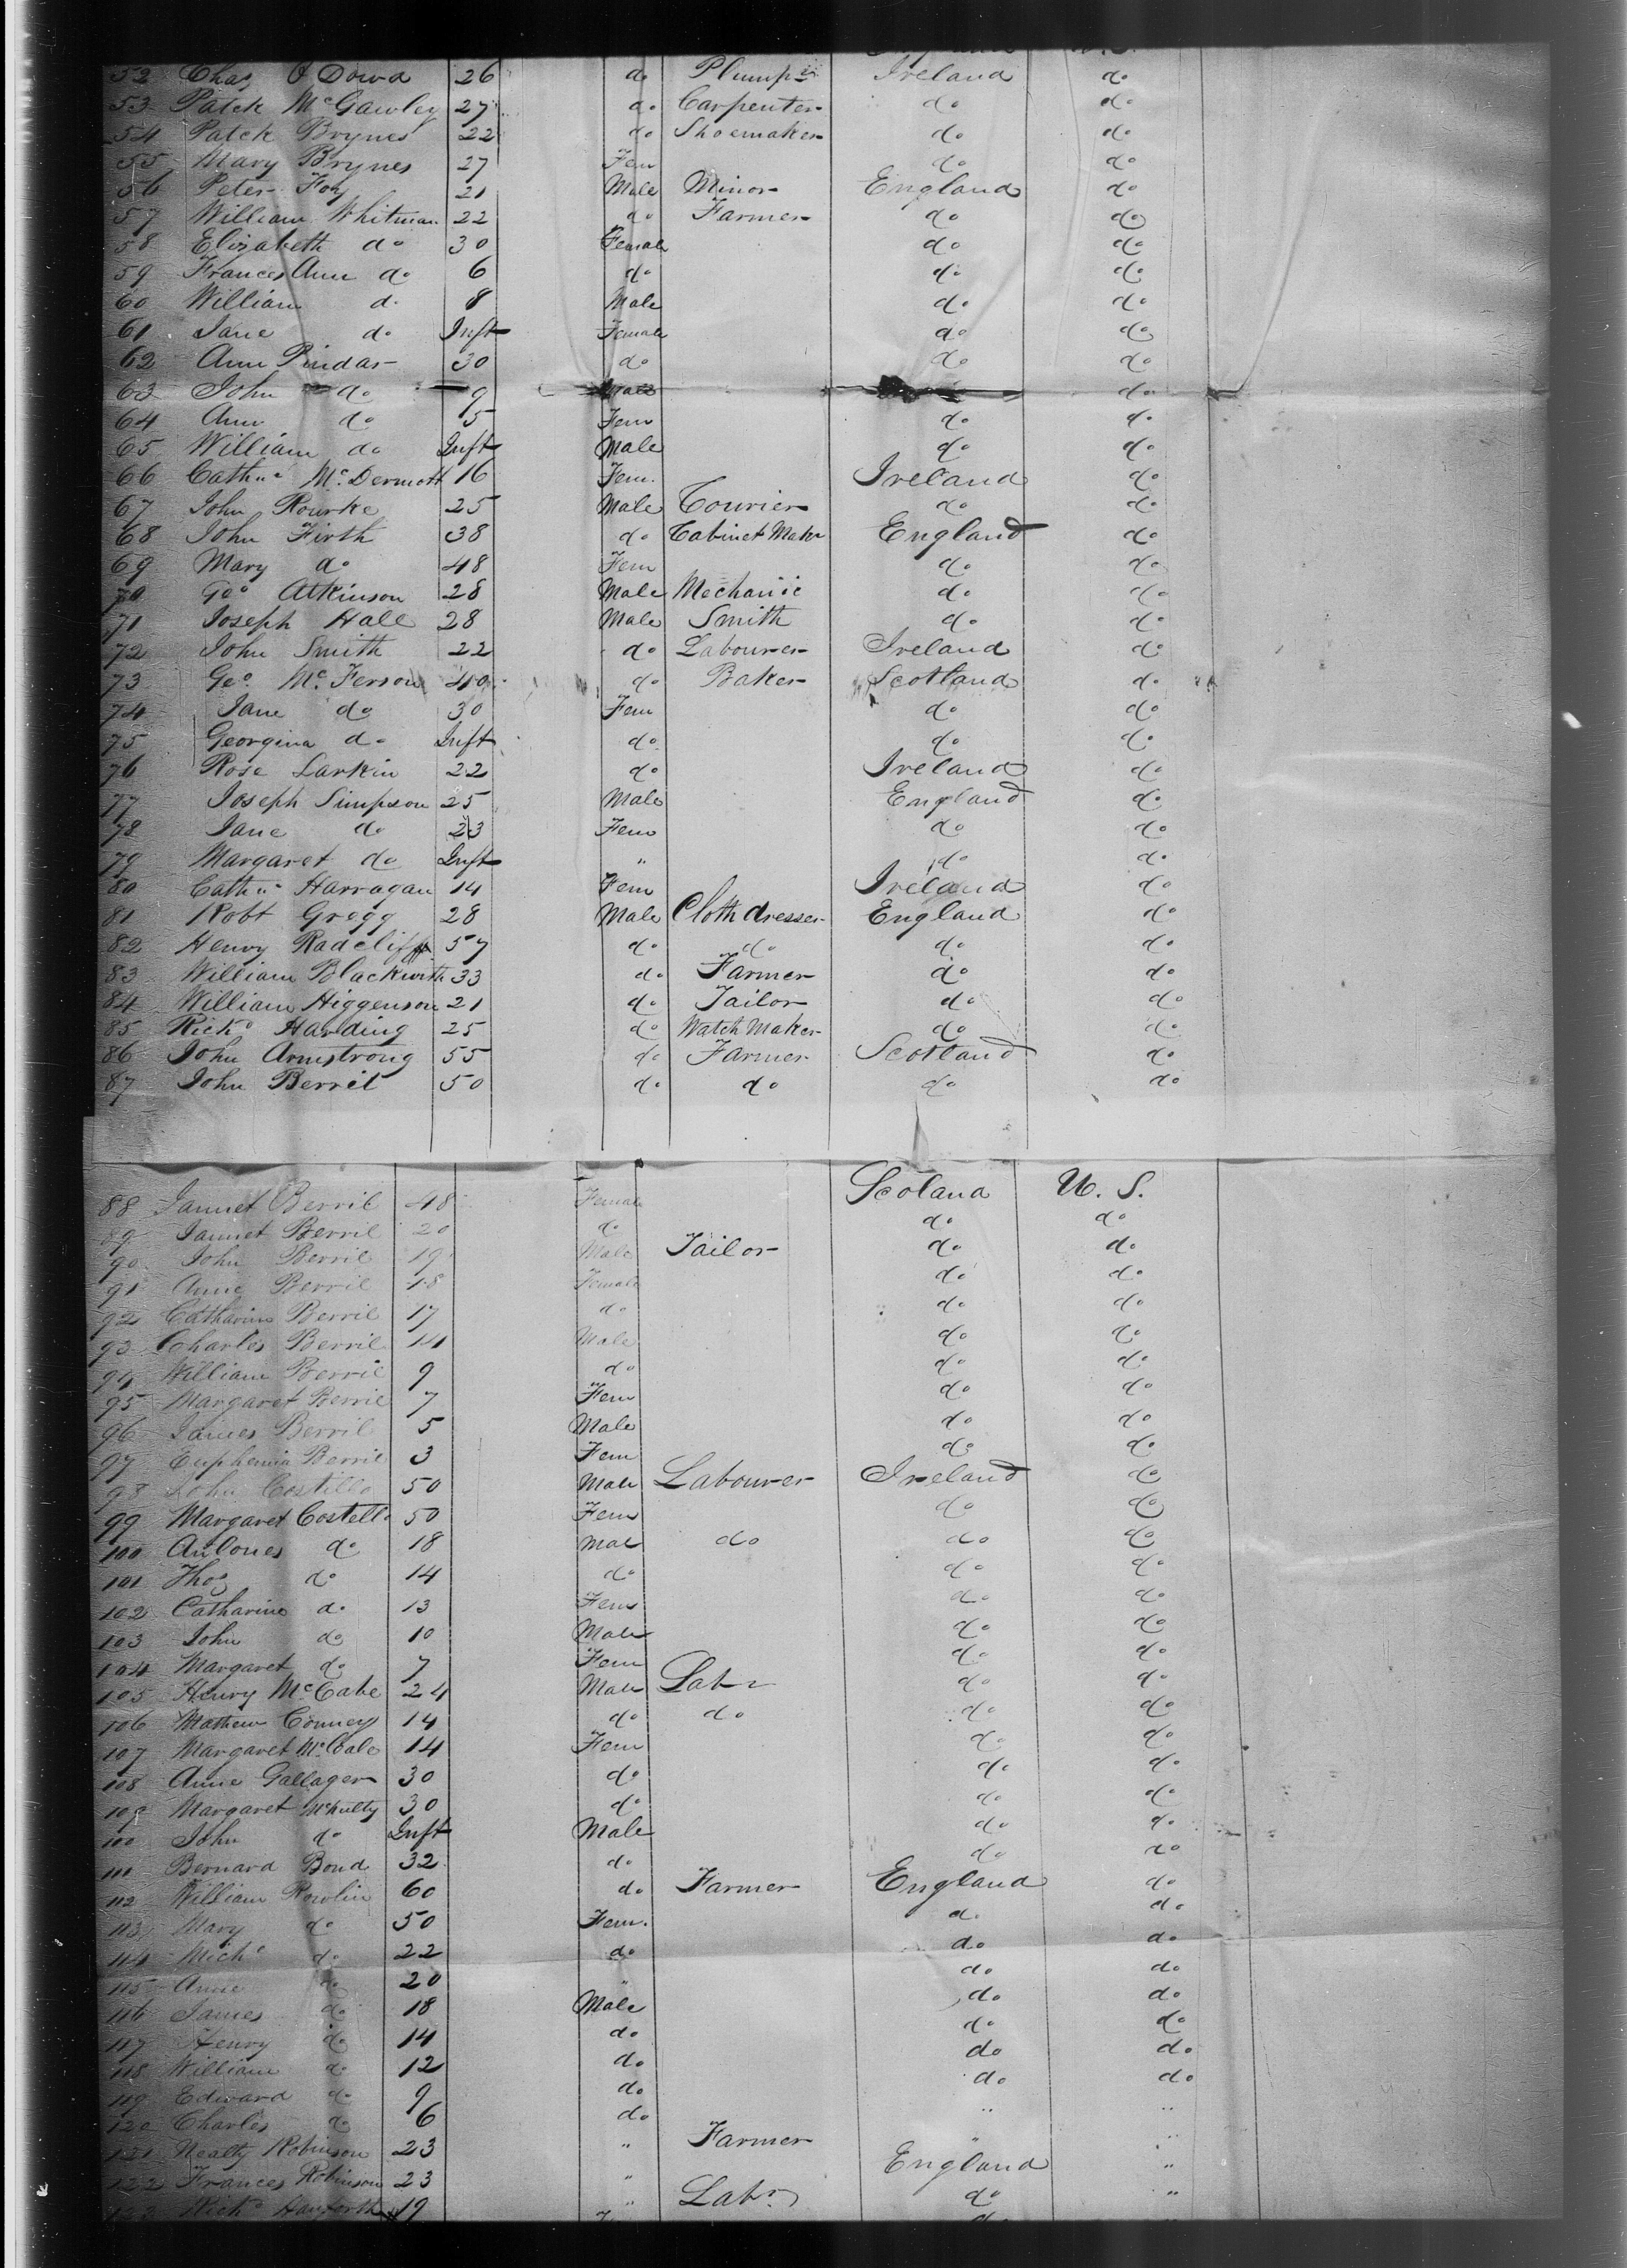 52 Chas O Dowd 26 do Plump Ireland do
53 Patck McGawley 27 do Carpenter do do
54 Patck Brynes 22 do Shoemaker do do
55 Mary Brynes 27 Fem do do
56 Peter Foy 21 Male Minor England do
57 William Whitman 22 do Farmer do do
58 Elizabeth do 30 Female do do
59 Frances Ann do 6 do do do
60 William do 8 Male do do
61 Jane do Inft Female do do
62 Ann Pindar 30 do do do
63 John do 9 Male do
64 Ann do 5 Fem do do
65 William do Inft Male do do
66 Cathne McDermott 16 Fem. Ireland do
67 John Rourke 25 Male Courier do do
68 John Firth 38 do Cabinet Maker England do
69 Mary do 48 Fem do do
70 Geo Atkinson 28 Male Mechanic do do
71 Joseph Hall 28 Male Smith do do
72 John Smith 22 do Labourer Ireland do
73 Geo. McFerson 40 do Baker Scotland do
74 Jane do 30 Fem do do
75 Georgina do Inft do do do
76 Rose Larkin 22 do Ireland do
77 Joseph Simpson 25 Male England do
78 Jane do 23 Fem do do
79 Margaret do Inft " do do
80 Cathne Harragan 14 Fem Ireland do
81 Robt Gregg 28 Male Cloth dresser England do
82 Henry Radcliff 57 do do do do
83 William Blackwith 33 do Farmer do do
84 William Higgenson 21 do Tailor do do
85 Rickd Harding 25 do Watch Maker do do
86 John Armstrong 55 do Farmer Scotland do
87 John Berril 50 do do do do
88 Jannet Berril 48 Female Scotand U. S.
89 Jannet Berril 20 do do do
90 John Berril 19 Male Tailor do do
91 Anne Berril 18 Female do do
92 Catharine Berril 17 do do do
93 Charles Berril 14 Male do do
94 William Berril 9 do do do
95 Margaret Berril 7 Fem do do
96 James Berril 5 Male do do
97 Euphemia Berril 3 Fem do do
98 John Costillo 50 Male Labourer Ireland do
99 Margaret Costello 50 Fem do do
100 do 18 Male do do do
101 Thos do 14 do do do
102 Catharine do 13 Fem do do
103 John do 10 Male do do
104 Margaret do 7 Fem do do
105 Henry McCabe 24 Male Labr do do
106 Mathew Conney 14 do do do do
107 Margaret McCabe 14 Fem do do
108 Anne Gallager 30 do do do
109 Margaret McNulty 30 do do do
100 John do Inft Male do do
111 Bernard Bond 32 do do do
112 William Rowlin 60 do Farmer England do
113 Mary do 50 Fem. do do
114 Michl do 22 do do do
115 Anne do 20 " do do
116 James do 18 Male do do
117 Henry do 14 do do do
118 William do 12 do do do
119 Edward do 9 do do do
120 Charles do 6 do " "
121 Robinson 23 " Farmer " "
122 Frances Robinson 23 " England "
123 Rickd 19 " Labr do "